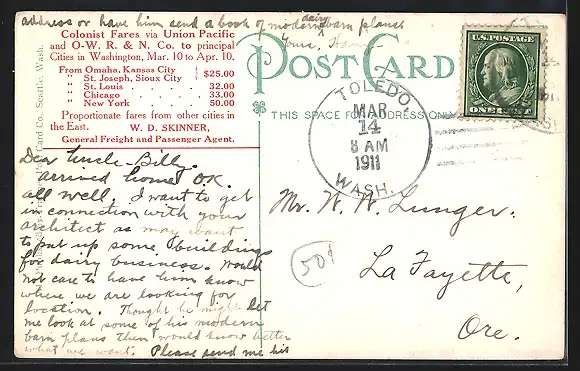 address or have him send a book of modern dairy barn plans
Yours,
Colonist Fares via Union Pacific
and O-W. R. & N. Co. to principal
Cities in Washington, Mar. 10 to Apr. 10.
From Omaha, Kansas City
" St. Joseph, Sioux City } $25.00
" St. Louis . . . . . . 32.00
" Chicago . . . . . . 33.00
" New York . . . . . 50.00
Proportionate fares from other cities in
the East. W. D. SKINNER,
General Freight and Passenger Agent.
POST CARD
THIS SPACE FOR ADDRESS ONLY
U.S. POSTAGE
ONE CENT
TOLEDO,
MAR
14
8 AM
1911
WASH.
Card Co. Seattle, Wash.
Dear Uncle Billy.
arrived home O.K.
all well, I want to get
in connection with your
architect as may want
to put up some buildings
for dairy business. Would
not care to have him know
where we are looking for
location. Thought he might let
me look at some of his modern
barn plans then would know better
what we want. Please send me his
Mr. W. W. Lunger.
La Fayette,
Ore.
50¢